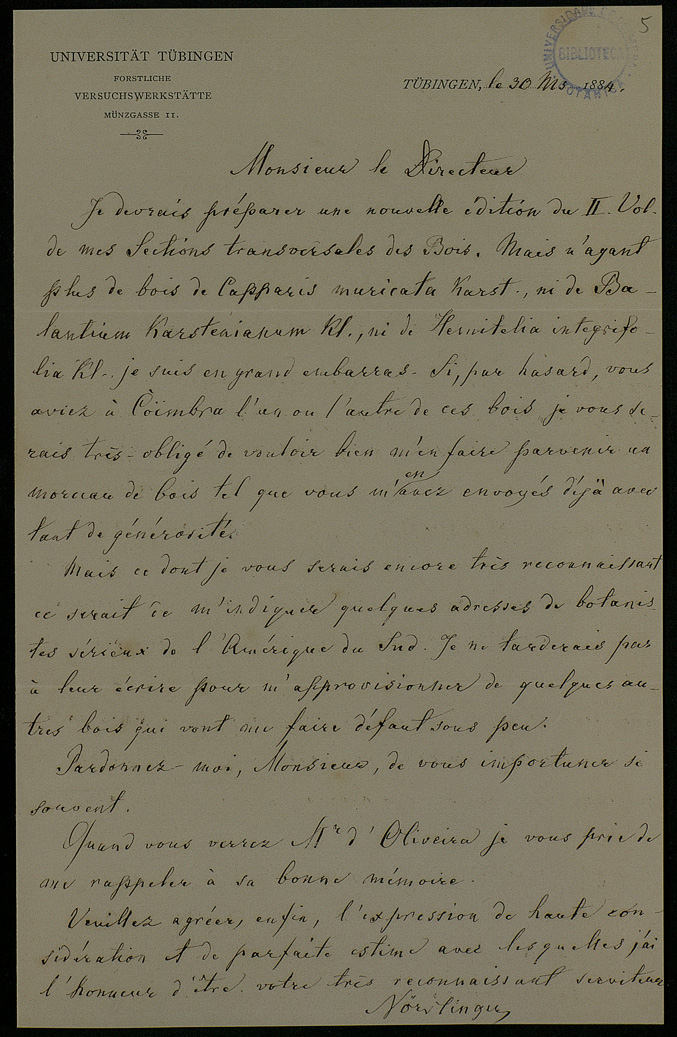 5
UNIVERSIDADE DE
BIBLIOTECA
BOTANICA
UNIVERSITÄT TÜBINGEN
FORSTLICHE
VERSUCHSWERKSTÄTTE
MÜNZGASSE 11.
TÜBINGEN, le 30 Ms 1884.
Monsieur le Directeur
Je devrais préparer une nouvelle édition du II. Vol.
de mes Sections transversales des Bois. Mais n'ayant
plus de bois de Capparis muricata Karst., ni de Ba-
lantium Karstenianum Kl., ni de Hemitelia integrifo-
lia Kl. je suis en grand embarras. Si, par hasard, vous
aviez à Coïmbra l'un ou l'autre de ces bois je vous se-
rais très-obligé de vouloir bien m'en faire parvenir un
morceau de bois tel que vous m'en avez envoyés déjà avec
tant de générosité.
Mais ce dont je vous serais encore très reconnaissant
ce serait de m'indiquer quelques adresses de botanis
tes sérieux de l'Amérique du Sud. Je ne tarderais pas
à leur écrire pour m'approvisionner de quelques au-
tres bois qui vont me faire défaut sous peu.
Pardonnez-moi, Monsieur, de vous importuner si
souvent.
Quand vous verrez Mr d'Oliveira je vous prie de
me rappeler à sa bonne mémoire.
Veuillez agréer, enfin, l'expression de haute con-
sidération et de parfaite estime avec lesquelles j'ai
l'honneur d'être votre très reconnaissant serviteur
Nördlinger